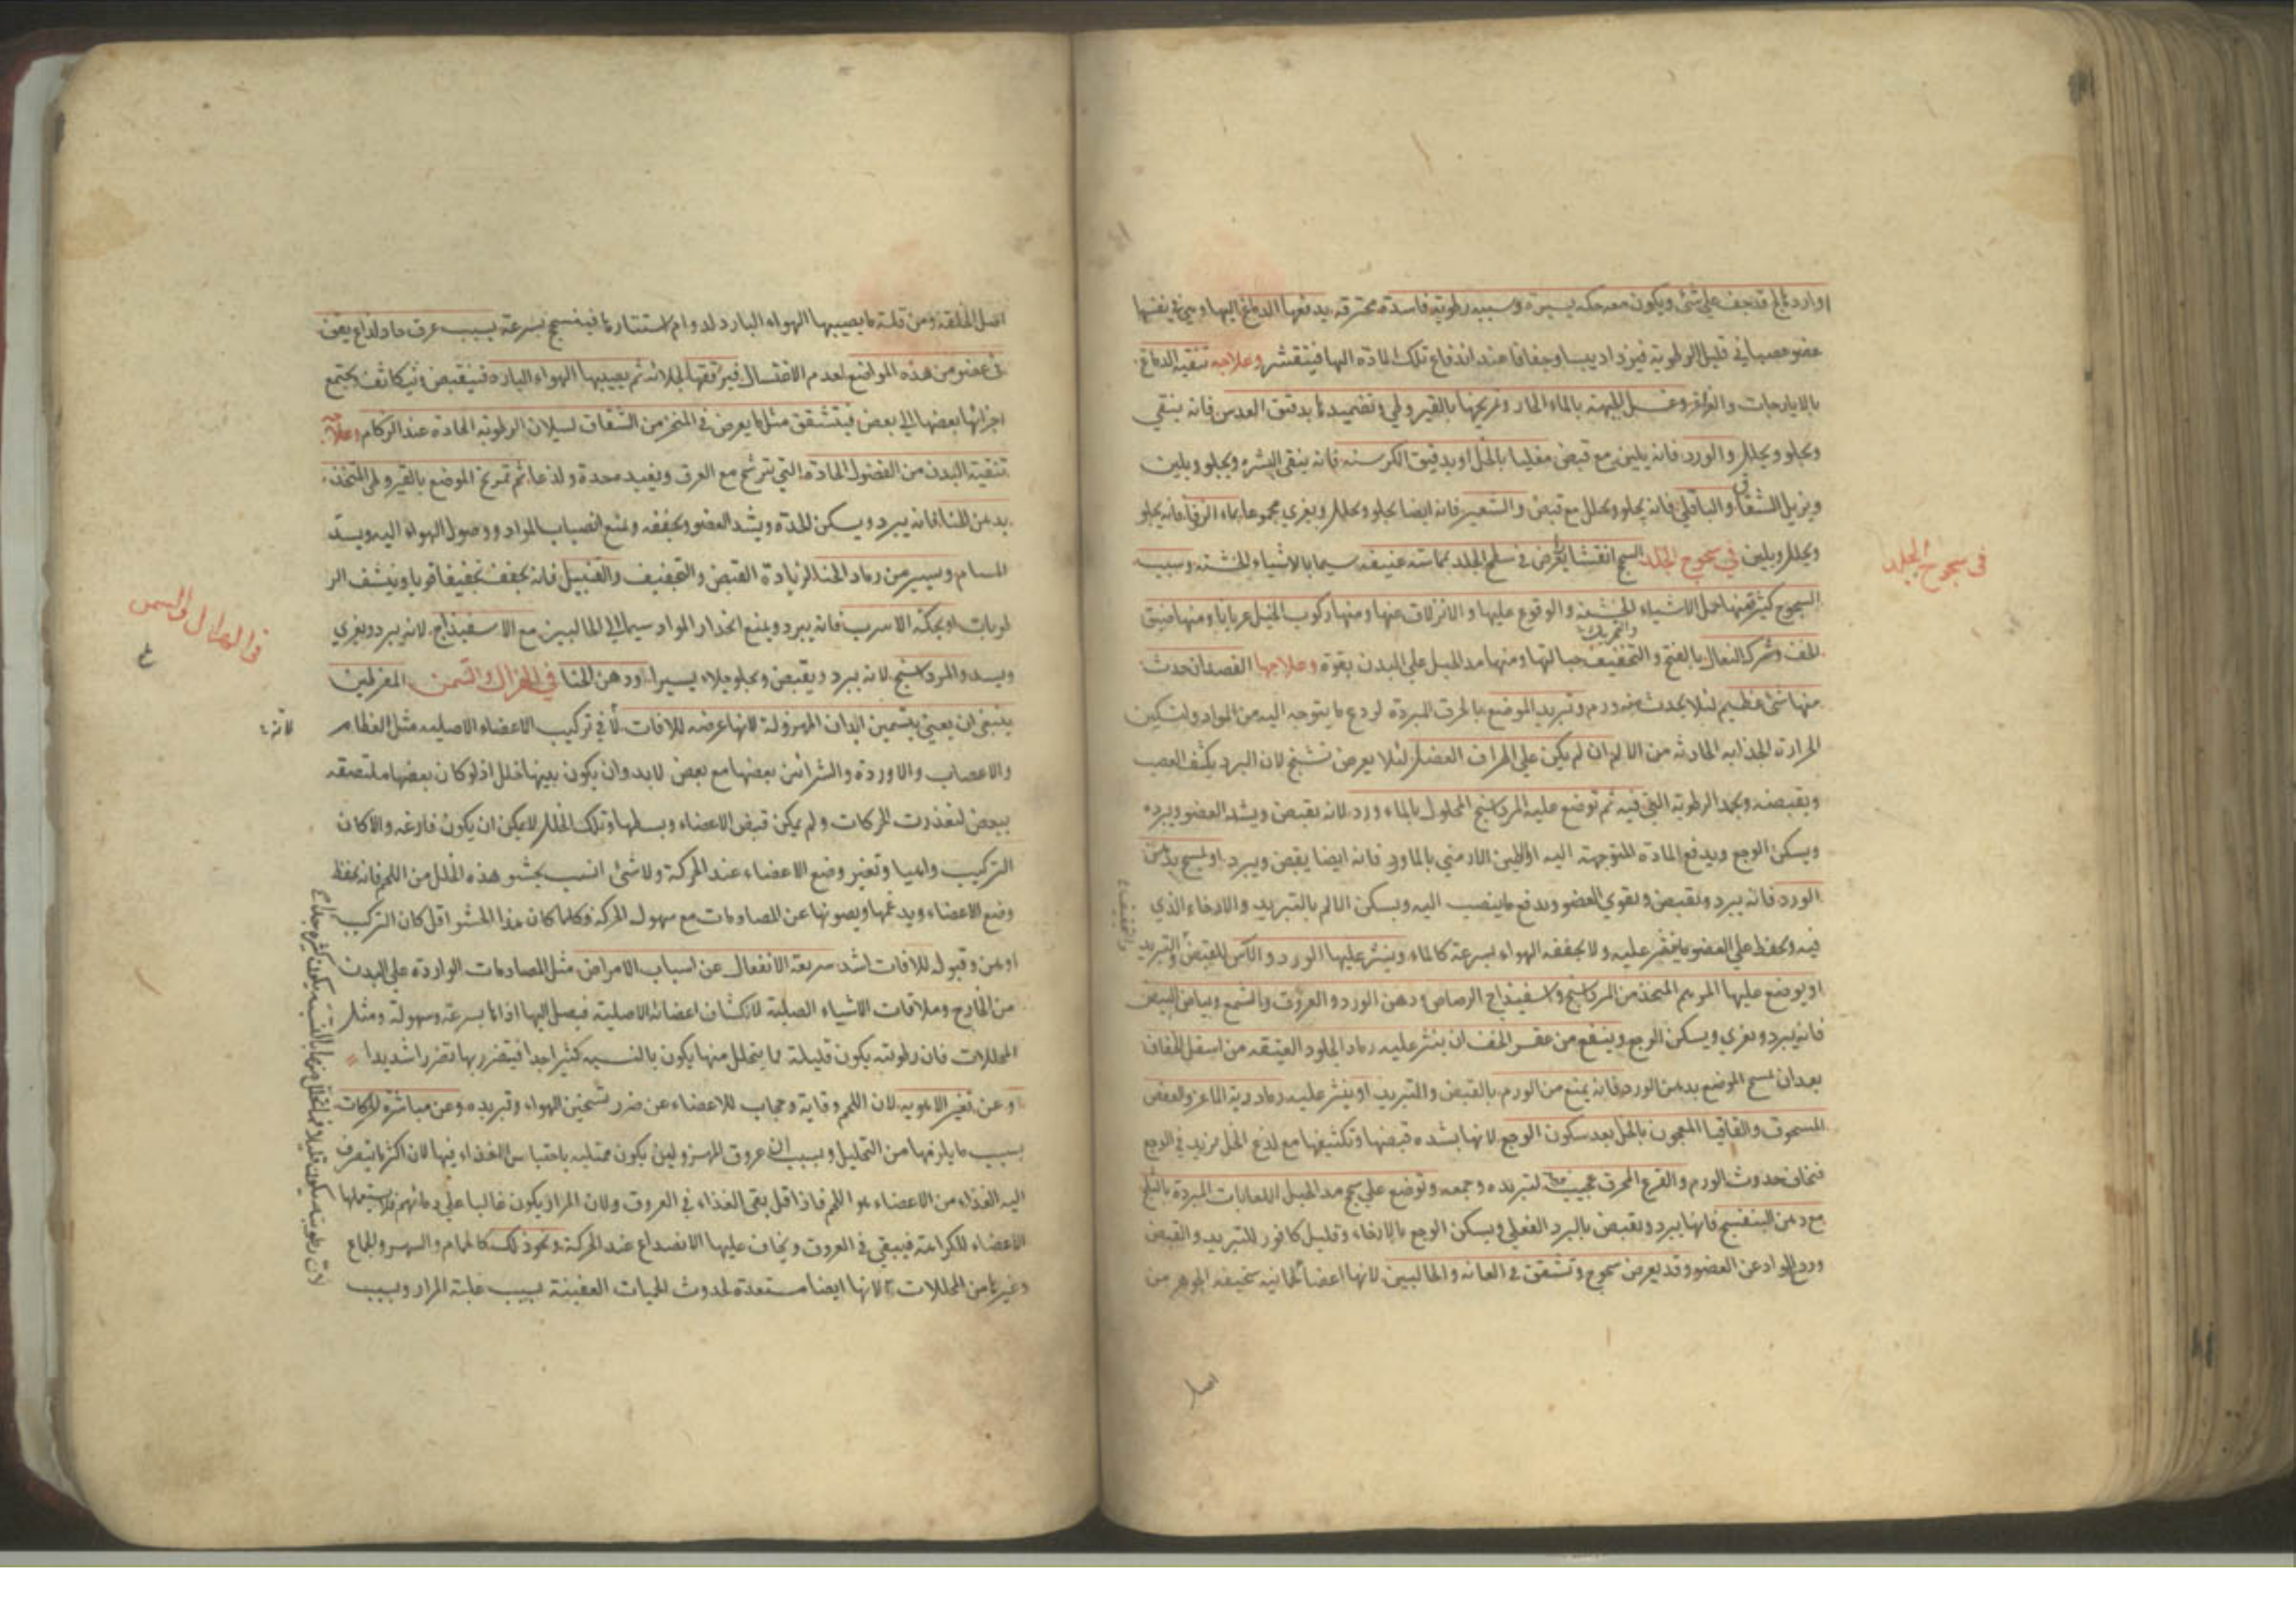 او اردية لم قد جف على شئ ويكون معه حكة يسيرة وسببه رطوبة فاسدة محترقة يدفعها الدماغ اليها وهي في نفسها
عضو عصباني قليل الرطوبة فيزداد يبسا وجفافا عند اندفاع تلك المادة اليها فيتقشر وعلاجه تنقية الدماغ
بالايارجات والغراغر وغسل الجبهة بالماء الحار وتمريخها بالقيروطي وتضميدها بدقيق العدس فانه ينقي
ويجلو ويحلل والورد فانه يلين مع قبض مغليا بالخل او بدقيق الكرسنه فانه ينقي البشرة ويجلو ويلين
ويزيل الشقاق والباقلي فانه يجلو ويحلل مع قبض والشعير فانه ايضا يجلو ويحلل ويغري مجموعا بماء فانه يجلو
ويحلل ويلين في سحوج الجلد السحج انقشار يعرض في سطح الجلد بمماسة عنيفه سيما بالاشياء الخشنه وسبب
في سحوج الجلد
السحوج كثير فمنها حمل الاشياء الخشنه والوقوع عليها والانزلاق عنها ومنها ركوب الخيل عريانا ومنها ضيق
الخف وشرك النعال بالفتح والتخفيف حبالتها ومنها مد الحبل على البدن بقوة وعلاجها الفصد ان حدث
منها شئ عظيم لئلا يحدث منه ورم وتبريد الموضع بالخرق المبردة لردع ما يتوجه اليه من المواد ولتسكين
الحرارة الجذابه الحادثه من الالم ان لم يكن على اطراف العضل لئلا يعرض تشنج لان البرد يكثف العصب
ويقبضه ويجمد الرطوبة التي فيه ثم توضع عليه المرداسنج المحلول بالماء ورد لانه يقبض ويشد العضو ويبرده
ويسكن الوجع ويدفع المادة المتوجهة اليه او الطين الارمني بالماورد فانه ايضا يقبض ويبرد او يمسح بدهن
الورد فانه يبرد ويقبض ويقوي العضو ويدفع ما ينصب اليه ويسكن الالم بالتبريد والارخاء الذي
فيه ويحفظ على العضو ما يفتر عليه ولا يجففه الهواء بسرعة كالماء وينثر عليها الورد والآس للقبض والتبريد
والتجفيف
او يوضع عليها المرهم المتخذ من المرداسنج واسفيداج الرصاص ودهن الورد والعروق والشمع وبياض البيض
فانه يبرد ويغري ويسكن الوجع وينفع من عقر الخف ان ينثر عليه رماد الجلود العتيقه من اسفل الخفاف
بعد ان يمسح الموضع بدهن الورد فانه يمنع من الورم بالقبض والتبريد او ينثر عليه رماد رية الماعز والعفص
المسحوق والقاقيا المعجون بالخل بعد سكون الوجع لانها بشدة قبضها وتكثيفها مع لذع الخل يزيد في الوجع
فيخاف حدوث الورم والقرع المحرق عجيب لتبريده وجمعه وتوضع على سحج مد الحبل اللعابات المبردة بالثلج
مع دهن البنفسج فانها يبرد ويقبض بالبرد الفعلي ويسكن الوجع بالارخاء وقليل كافور للتبريد والقبض
وردع المواد عن العضو وقد يعرض سحوج وتشقق في العانه والحالبين لانها اعضاء لحمانيه سخيفه الجوهر من
اصل
اصل الخلقة ومن قلة ما يصيبها الهواء البارد لدوام استتارها فينسحج بسرعة بسبب عرق حاد لذاع يعرض
في عضو من هذه المواضع لعدم الاغتسال فيرققها لجلائه ثم يصيبها الهواء البارد فينقبض ويتكاثف ويجتمع
اجزائها بعضها الى بعض فيتشقق مثل ما يعرض في المنخر من الشقاق لسيلان الرطوبة الحادة عند الزكام وعلاجه
تنقية البدن من الفضول الحادة التي ترشح مع العرق ويفيده حدة ولذعا ثم تمريخ الموضع بالقيروطي المتخذ
بدهن الحنا فانه يبرد ويسكن الحدة ويشد العضو ويجففه ويمنع انصباب المواد ووصول الهواء اليه ويسد
المسام ويسير من رماد الحنا لزيادة القبض والتجفيف والقيبيل فانه يجفف تجفيفا قويا وينشف الر
طوبات او بحكة الاسرب فانه يبرد ويمنع انحدار المواد سيما الى الحالبين مع الاسفيذاج لانه يبرد ويغري
ويسد والمرداسنج لانه يبرد ويقبض ويجلو جلاء يسيرا ودهن الحنا في الهزال والسمن المفرطين
في الهزال والسمن
ينبغي ان يعنى بتسمين ابدان المهزولة لانها عرضه للافات لأ في تركيب الاعضاء الاصليه مثل العظام
لانه
والاعصاب والاوردة والشرائين بعضها مع بعض لابد وان يكون بينها خلل اذ لو كان بعضها ملتصقه
ببعض لتعذرت الحركات ولم يمكن قبض الاعضاء وبسطها وتلك الخلل لا يمكن ان يكون فارغه والا كان
التركيب واهيا وتغير وضع الاعضاء عند الحركة ولا شئ انسب بحشو هذه الخلل من اللحم فانه يحفظ
وضع الاعضاء ويدعمها ويصونها عن المصادمات مع سهولة الحركة وكلما كان هذا الحشو اقل كان التركيب
اوهن وقبوله للافات اشد سريعة الانفعال عن اسباب الامراض مثل المصادمات الواردة على البدن
من الخارج وملاقات الاشياء الصلبة لانكشاف اعضائه الاصلية فيصل اليها اذاها بسرعة وسهولة ومثل
المحللات فان رطوبته يكون قليلة فما يتحلل منها يكون بالنسبه كثيرا جدا فيتضرر بها تضررا شديدا
وعن تغير الاهويه لان اللحم وقاية وحجاب للاعضاء عن ضرر تسخين الهواء وتبريده وعن مباشرة الحركات
بسبب ما يلزمها من التحليل وبسبب ان عروق المهزولين يكون ممتليه باحتباس الغذاء فيها لان اكثر ما يتصرف
اليه الغذاء من الاعضاء هو اللحم فاذا قل بقى الغذاء في العروق ولان المرار يكون غالبا على دمائهم فلا يستعملها
الاعضاء للكراهة فيبقى في العروق ويخاف عليها الانصداع عند الحركة ونحو ذلك كالحمام والسهر والجماع
وغيرها من المحللات لانها ايضا مستعدة لحدوث الحميات العفينة بسبب غلبة المرار وبسبب
لان رطوبته يكون قليلا فما يتحلل منها بالنسبة يكون كثيرا جدا